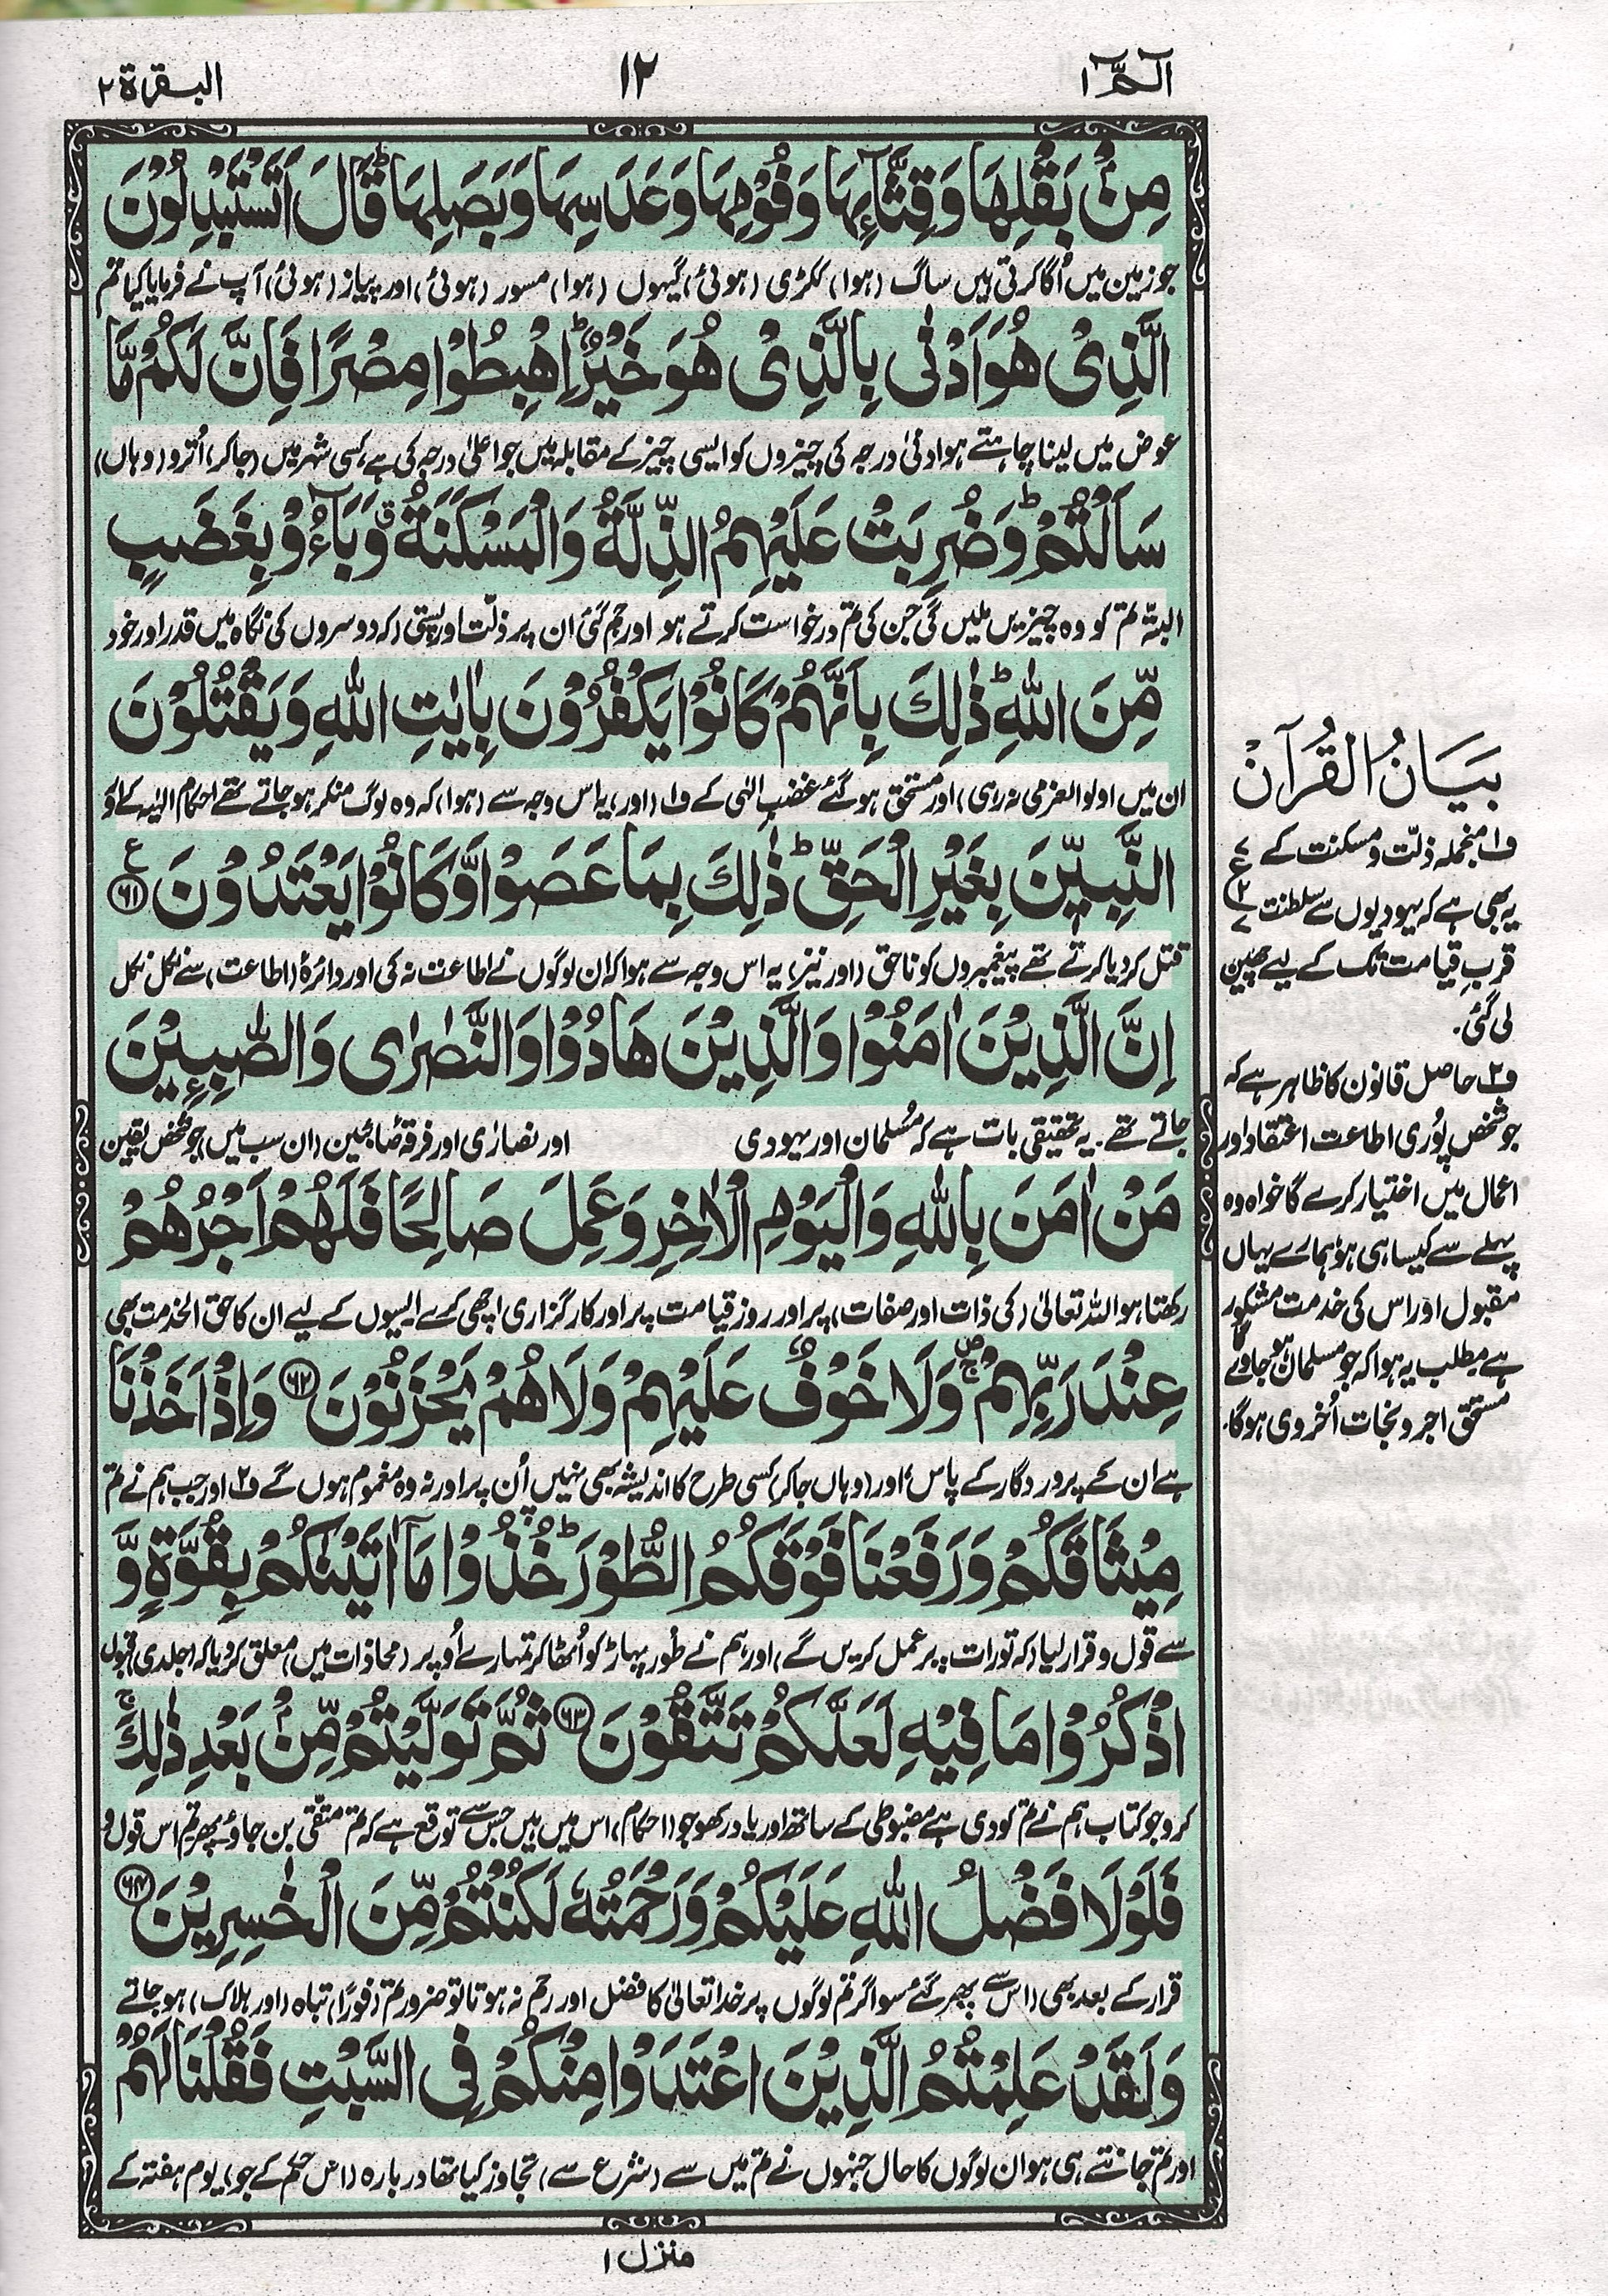 الٓمّٓ ۱
۱۲
البقرة ۲
مِنْۢ بَقْلِهَا وَقِثَّآئِهَا وَفُوْمِهَا وَعَدَسِهَا وَبَصَلِهَا ؕ قَالَ اَتَسْتَبْدِلُوْنَ
جو زمین میں اُگا کرتی ہیں ساگ (ہوا) ککڑی (ہوئی) گیہوں (ہوا) مسور (ہوئی) اور پیاز (ہوئی) آپ نے فرمایا کیا تم
الَّذِىْ هُوَ اَدْنٰى بِالَّذِىْ هُوَ خَيْرٌ ؕ اِهْبِطُوْا مِصْرًا فَاِنَّ لَكُمْ مَّا
عوض میں لینا چاہتے ہو ادنیٰ درجہ کی چیزوں کو ایسی چیز کے مقابلہ میں جو اعلیٰ درجہ کی ہے، کسی شہر میں (جا کر) اُترو (وہاں)
سَاَلْتُمْ ؕ وَضُرِبَتْ عَلَيْهِمُ الذِّلَّةُ وَالْمَسْكَنَةُ ۗ وَبَآءُوْ بِغَضَبٍ
البتہ تم کو وہ چیزیں ملیں گی جن کی تم درخواست کرتے ہو اور جم گئی ان پر ذلّت اور پستی (کہ دوسروں کی نگاہ میں قدر اور خود
مِّنَ اللّٰهِ ؕ ذٰلِكَ بِاَنَّهُمْ كَانُوْا يَكْفُرُوْنَ بِاٰيٰتِ اللّٰهِ وَيَقْتُلُوْنَ
ان میں اولوالعزمی نہ رہی) اور مستحق ہو گئے غضبِ الٰہی کے ف۱ (اور) یہ اس وجہ سے (ہوا) کہ وہ لوگ منکر ہو جاتے تھے احکام الٰہیہ کے اور
النَّبِيّٖنَ بِغَيْرِ الْحَقِّ ؕ ذٰلِكَ بِمَا عَصَوْا وَّكَانُوْا يَعْتَدُوْنَ ﴿۶۱﴾ ع
قتل کر دیا کرتے تھے پیغمبروں کو ناحق (اور نیز) یہ اس وجہ سے ہوا کہ ان لوگوں نے اطاعت نہ کی اور دائرۂ (اطاعت) سے نکل نکل
اِنَّ الَّذِيْنَ اٰمَنُوْا وَالَّذِيْنَ هَادُوْا وَالنَّصٰرٰى وَالصّٰبِـِٕيْنَ
جاتے تھے۔ یہ تحقیقی بات ہے کہ مُسلمان اور یہودی اور نصارٰی اور فرقہ صابئین (ان سب میں) جو شخص یقین
مَنْ اٰمَنَ بِاللّٰهِ وَالْيَوْمِ الْاٰخِرِ وَعَمِلَ صَالِحًا فَلَهُمْ اَجْرُهُمْ
رکھتا ہو اللہ تعالیٰ (کی ذات اور صفات) پر اور روز قیامت پر اور کارگزاری اچھی کرے ایسوں کے لیے ان کا حق الخدمت بھی
عِنْدَ رَبِّهِمْ ۚ وَلَا خَوْفٌ عَلَيْهِمْ وَلَا هُمْ يَحْزَنُوْنَ ﴿۶۲﴾ وَاِذْ اَخَذْنَا
ہے ان کے پروردگار کے پاس، اور (وہاں جا کر) کسی طرح کا اندیشہ بھی نہیں اُن پر اور نہ وہ مغموم ہوں گے ف۲ اور جب ہم نے تم
مِيْثَاقَكُمْ وَرَفَعْنَا فَوْقَكُمُ الطُّوْرَ ؕ خُذُوْا مَآ اٰتَيْنٰكُمْ بِقُوَّةٍ وَّ
سے قول و قرار لیا (کہ تورات پر عمل کریں گے) اور ہم نے طُور پہاڑ کو اُٹھا کر تمہارے اُوپر (محاذات میں) معلق کر دیا کہ (جلدی) قبول
اذْكُرُوْا مَا فِيْهِ لَعَلَّكُمْ تَتَّقُوْنَ ﴿۶۳﴾ ثُمَّ تَوَلَّيْتُمْ مِّنْۢ بَعْدِ ذٰلِكَ ۚ
کرو جو کتاب ہم نے تم کو دی ہے مضبوطی کے ساتھ اور یاد رکھو جو (احکام) اس میں ہیں جس سے توقع ہے کہ تم متّقی بن جاؤ، پھر تم اس قول و
فَلَوْلَا فَضْلُ اللّٰهِ عَلَيْكُمْ وَرَحْمَتُهٗ لَكُنْتُمْ مِّنَ الْخٰسِرِيْنَ ﴿۶۴﴾
قرار کے بعد بھی (اس سے) پھر گئے سو اگر تم لوگوں پر خدا تعالیٰ کا فضل اور رحم نہ ہوتا تو ضرور تم (فورًا) تباہ (اور ہلاک) ہو جاتے
وَلَقَدْ عَلِمْتُمُ الَّذِيْنَ اعْتَدَوْا مِنْكُمْ فِى السَّبْتِ فَقُلْنَا لَهُمْ
اور تم جانتے ہی ہو ان لوگوں کا حال جنہوں نے تم میں سے (شرع سے) تجاوز کیا تھا در بارہ (اس حکم کے جو) یوم ہفتہ کے
منزل ۱
بَيَانُ الْقُرآنْ
ف۱ منجملہ ذلّت و مسکنت کے
یہ بھی ہے کہ یہودیوں سے سلطنت
قربِ قیامت تک کے لیے چھین
لی گئی۔
ف۲ حاصل قانون کا ظاہر ہے کہ
جو شخص پُوری اطاعت اعتقاد اور
اعمال میں اختیار کرے گا خواہ وہ
پہلے سے کیسا ہی ہو، ہمارے یہاں
مقبول اور اس کی خدمت مشکور
ہے مطلب یہ ہوا کہ جو مسلمان ہو جاوے گا
مستحق اجر و نجات اُخروی ہوگا۔